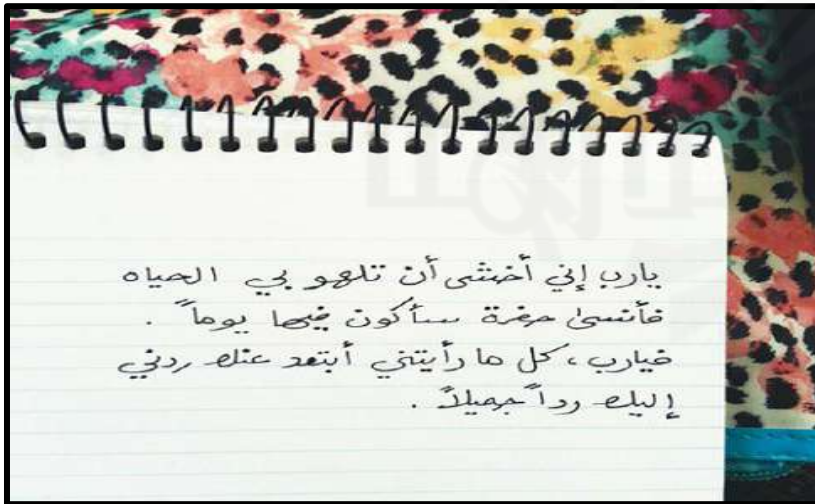 يارب إني أخشى أن تلهو بي الحياه
فأنسىٰ حفرة سأكون فيها يوماً .
فيارب ، كل ما رأيتني أبتعد عنك ردني
إليك رداً جميلاً .